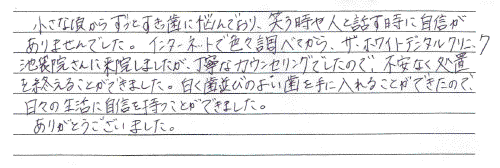 小さな頃からずっとすき歯に悩んでおり、笑う時や人と話す時に自信が
ありませんでした。インターネットで色々調べてから、ザ・ホワイトデンタルクリニック
池袋院さんに来院しましたが、丁寧なカウンセリングでしたので、不安なく処置
を終えることができました。白く歯並びのよい歯を手に入れることができたので、
日々の生活に自信を持つことができました。
ありがとうございました。